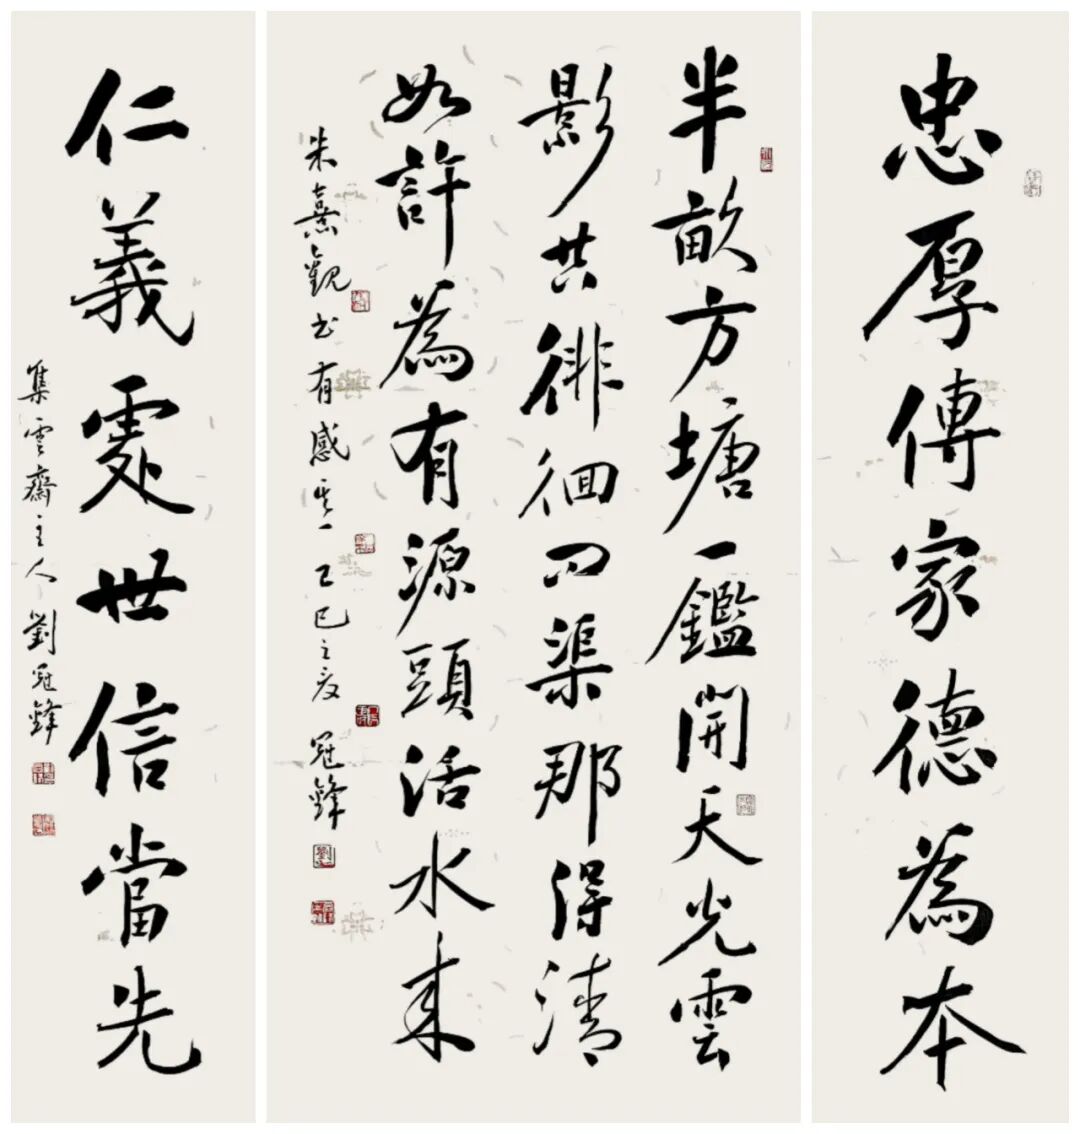 忠厚傳家德為本
半畝方塘一鑑開天光雲
影共徘徊問渠那得清
如許為有源頭活水来
朱熹觀书有感其一乙巳之夏冠鋒
仁義處世信當先
集雲齋主人劉冠鋒